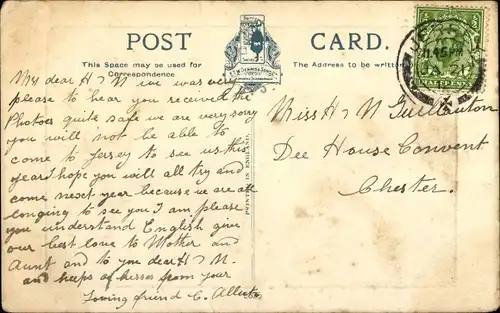 POST CARD.
This Space may be used for
Correspondence
The Address to be written
PRINTED IN ENGLAND.
My dear H & N we was very
please to hear you received the
Photoes quite safe we are very sory
you will not be able to
come to Jersey to see us this
year I hope you will all try and
come next year because we are all
longing to see you I am please
you understand English give
our best love to Mother and
Aunt and to you dear H & N.
and heeps of kisses from your
loving friend C.
Miss H & N
Dee House Convent
Chester.
JE
11.45 PM